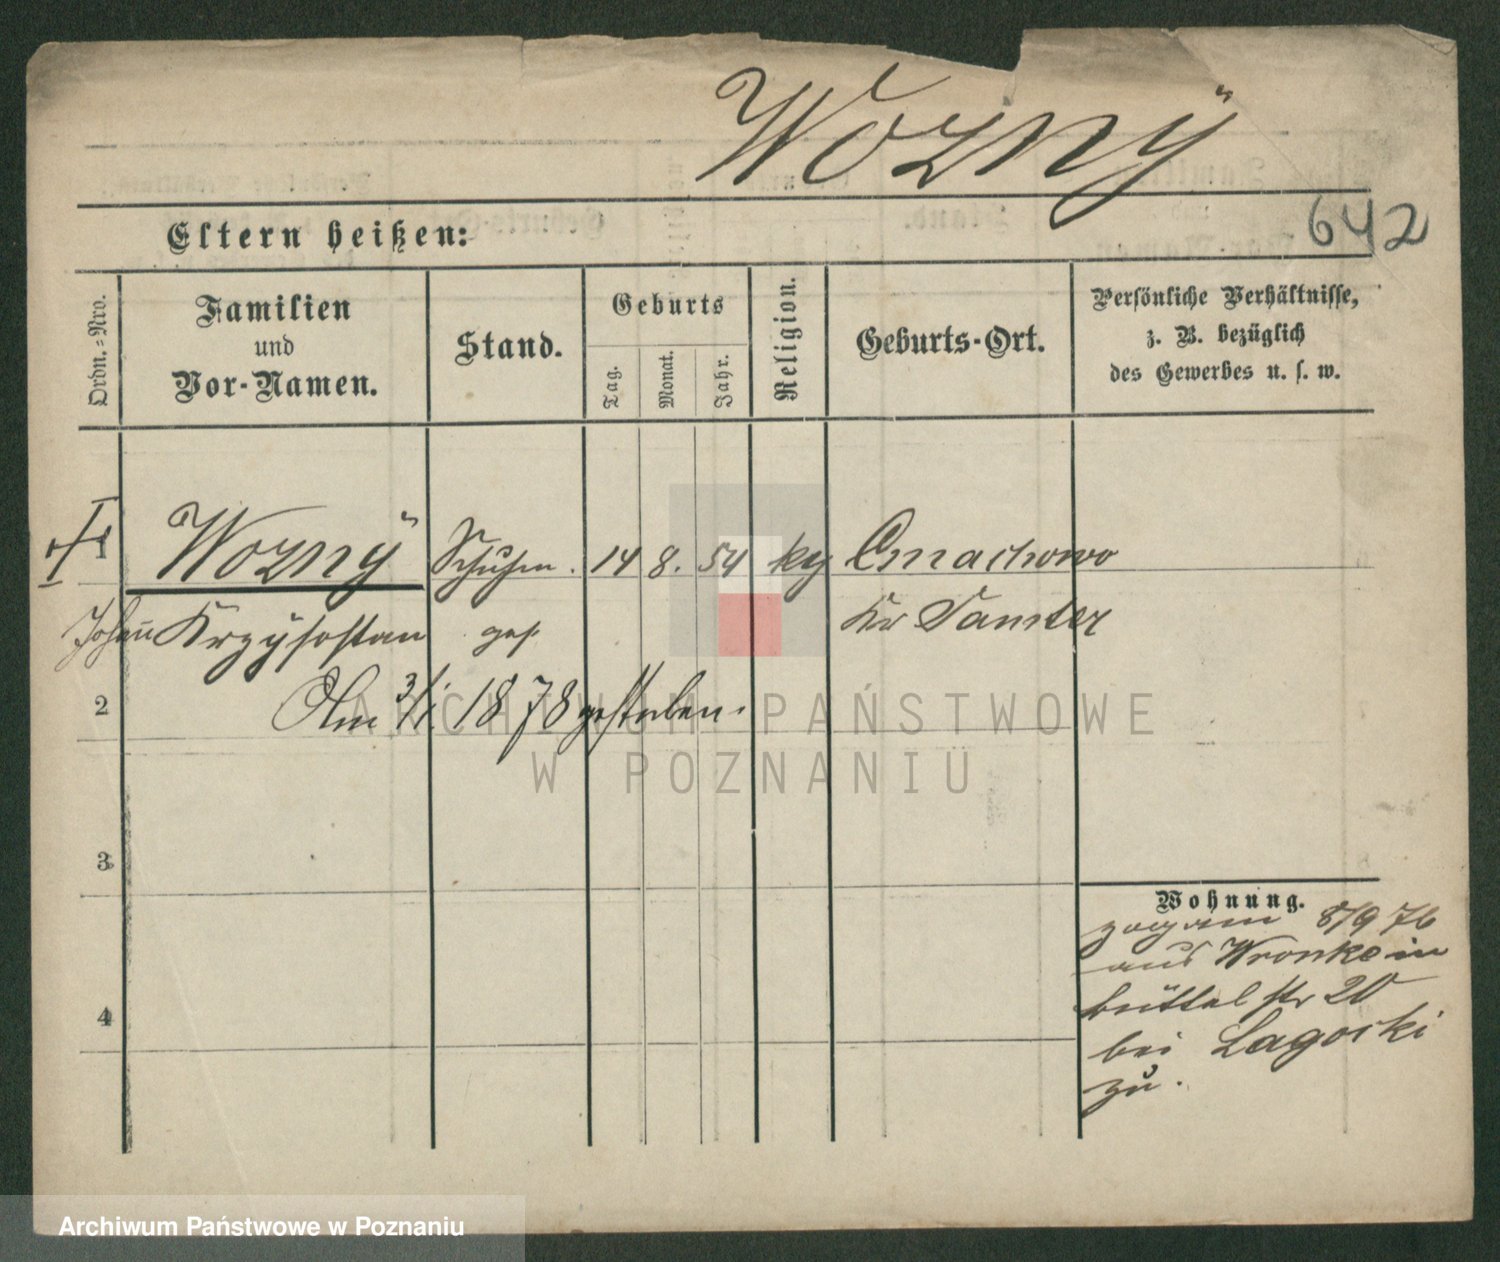 Wozny
642
Eltern heißen:
Ordn.=Nro.
Familien
und
Vor-Namen.
Stand.
Geburts
Tag.
Monat.
Jahr.
Religion.
Geburts-Ort.
Persönliche Verhältnisse,
z. B. bezüglich
des Gewerbes u. s. w.
1 Wozny Schuhm. 14 8. 54 Cmachowo
Johann Krzysostan ges. Kr Samter
2 Am 3/1. 1878 gestorben.
3
4
Wohnung.
zog am 8/9 76
aus Wronke in
büttelstr 20
bei Lagocki
zu.
ARCHIWUM PAŃSTWOWE
W POZNANIU
Archiwum Państwowe w Poznaniu